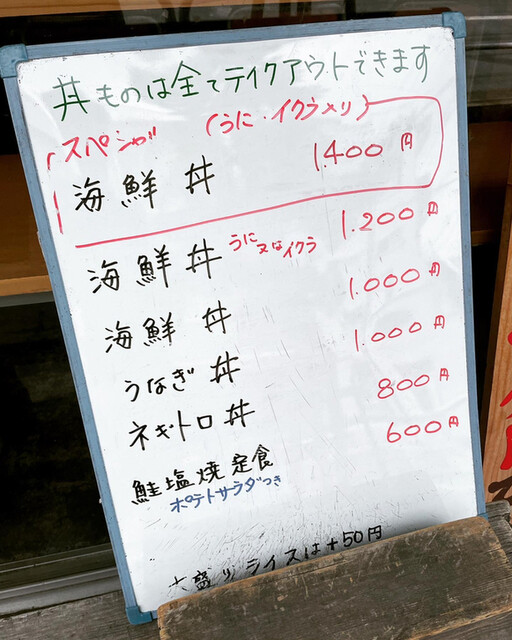 丼ものは全てテイクアウトできます
スペシャル (うに・イクラメリ)
海鮮丼 1.400円
海鮮丼 うに又はイクラ 1.200円
海鮮丼 1.000円
うなぎ丼 1.000円
ネギトロ丼 800円
鮭塩焼定食 600円
ポテトサラダつき
大盛りライスは+50円